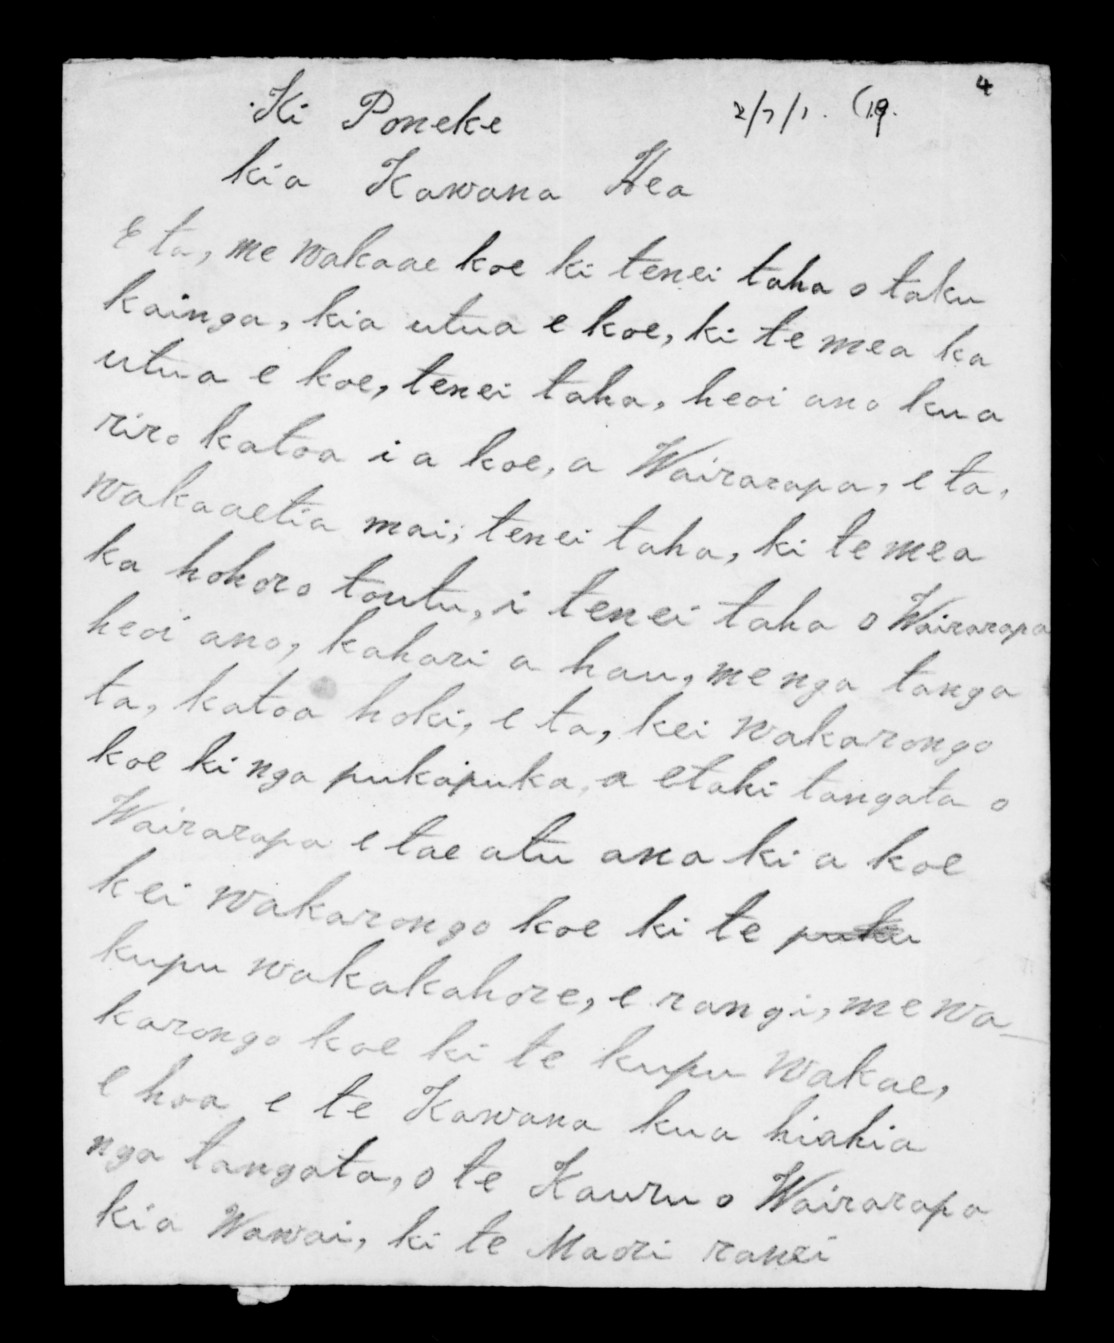 4
Ki Poneke 2/7/1. (19.
kia Kawana Hea
E ta, me wakaae koe ki tenei taha o taku
kainga, kia utua e koe, ki te mea ka
utua e koe, tenei taha, heoi ano kua
riro katoa i a koe, a Wairarapa, e ta,
wakaaetia mai; tenei taha, ki te mea
ka hohoro toutu, i tenei taha o Wairarapa
heoi ano, kahari a hau, me nga tanga
ta, katoa hoki, e ta, kei wakarongo
koe ki nga pukapuka, a etahi tangata o
Wairarapa e tae atu ana ki a koe
kei wakarongo koe ki te puku
kupu wakakahore, e rangi, me wa-
karongo koe ki te kupu wakae,
e hoa, e te Kawana kua hiahia
nga tangata, o te Kauru o Wairarapa
kia Wawai, ki te Maori ranei